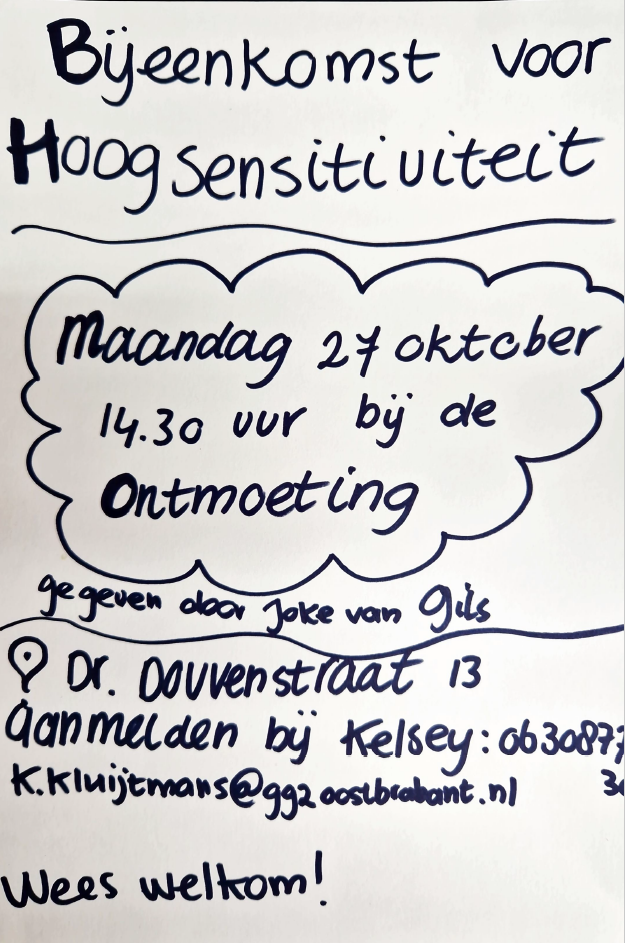 Bijeenkomst voor
Hoogsensitiviteit
Maandag 27 oktober
14.30 uur bij de
Ontmoeting
gegeven door Joke van Gils
Dr. Douvenstraat 13
Aanmelden bij Kelsey: 0630877
K.Kluijtmans@ggzoostbrabant.nl 30
Wees welkom!